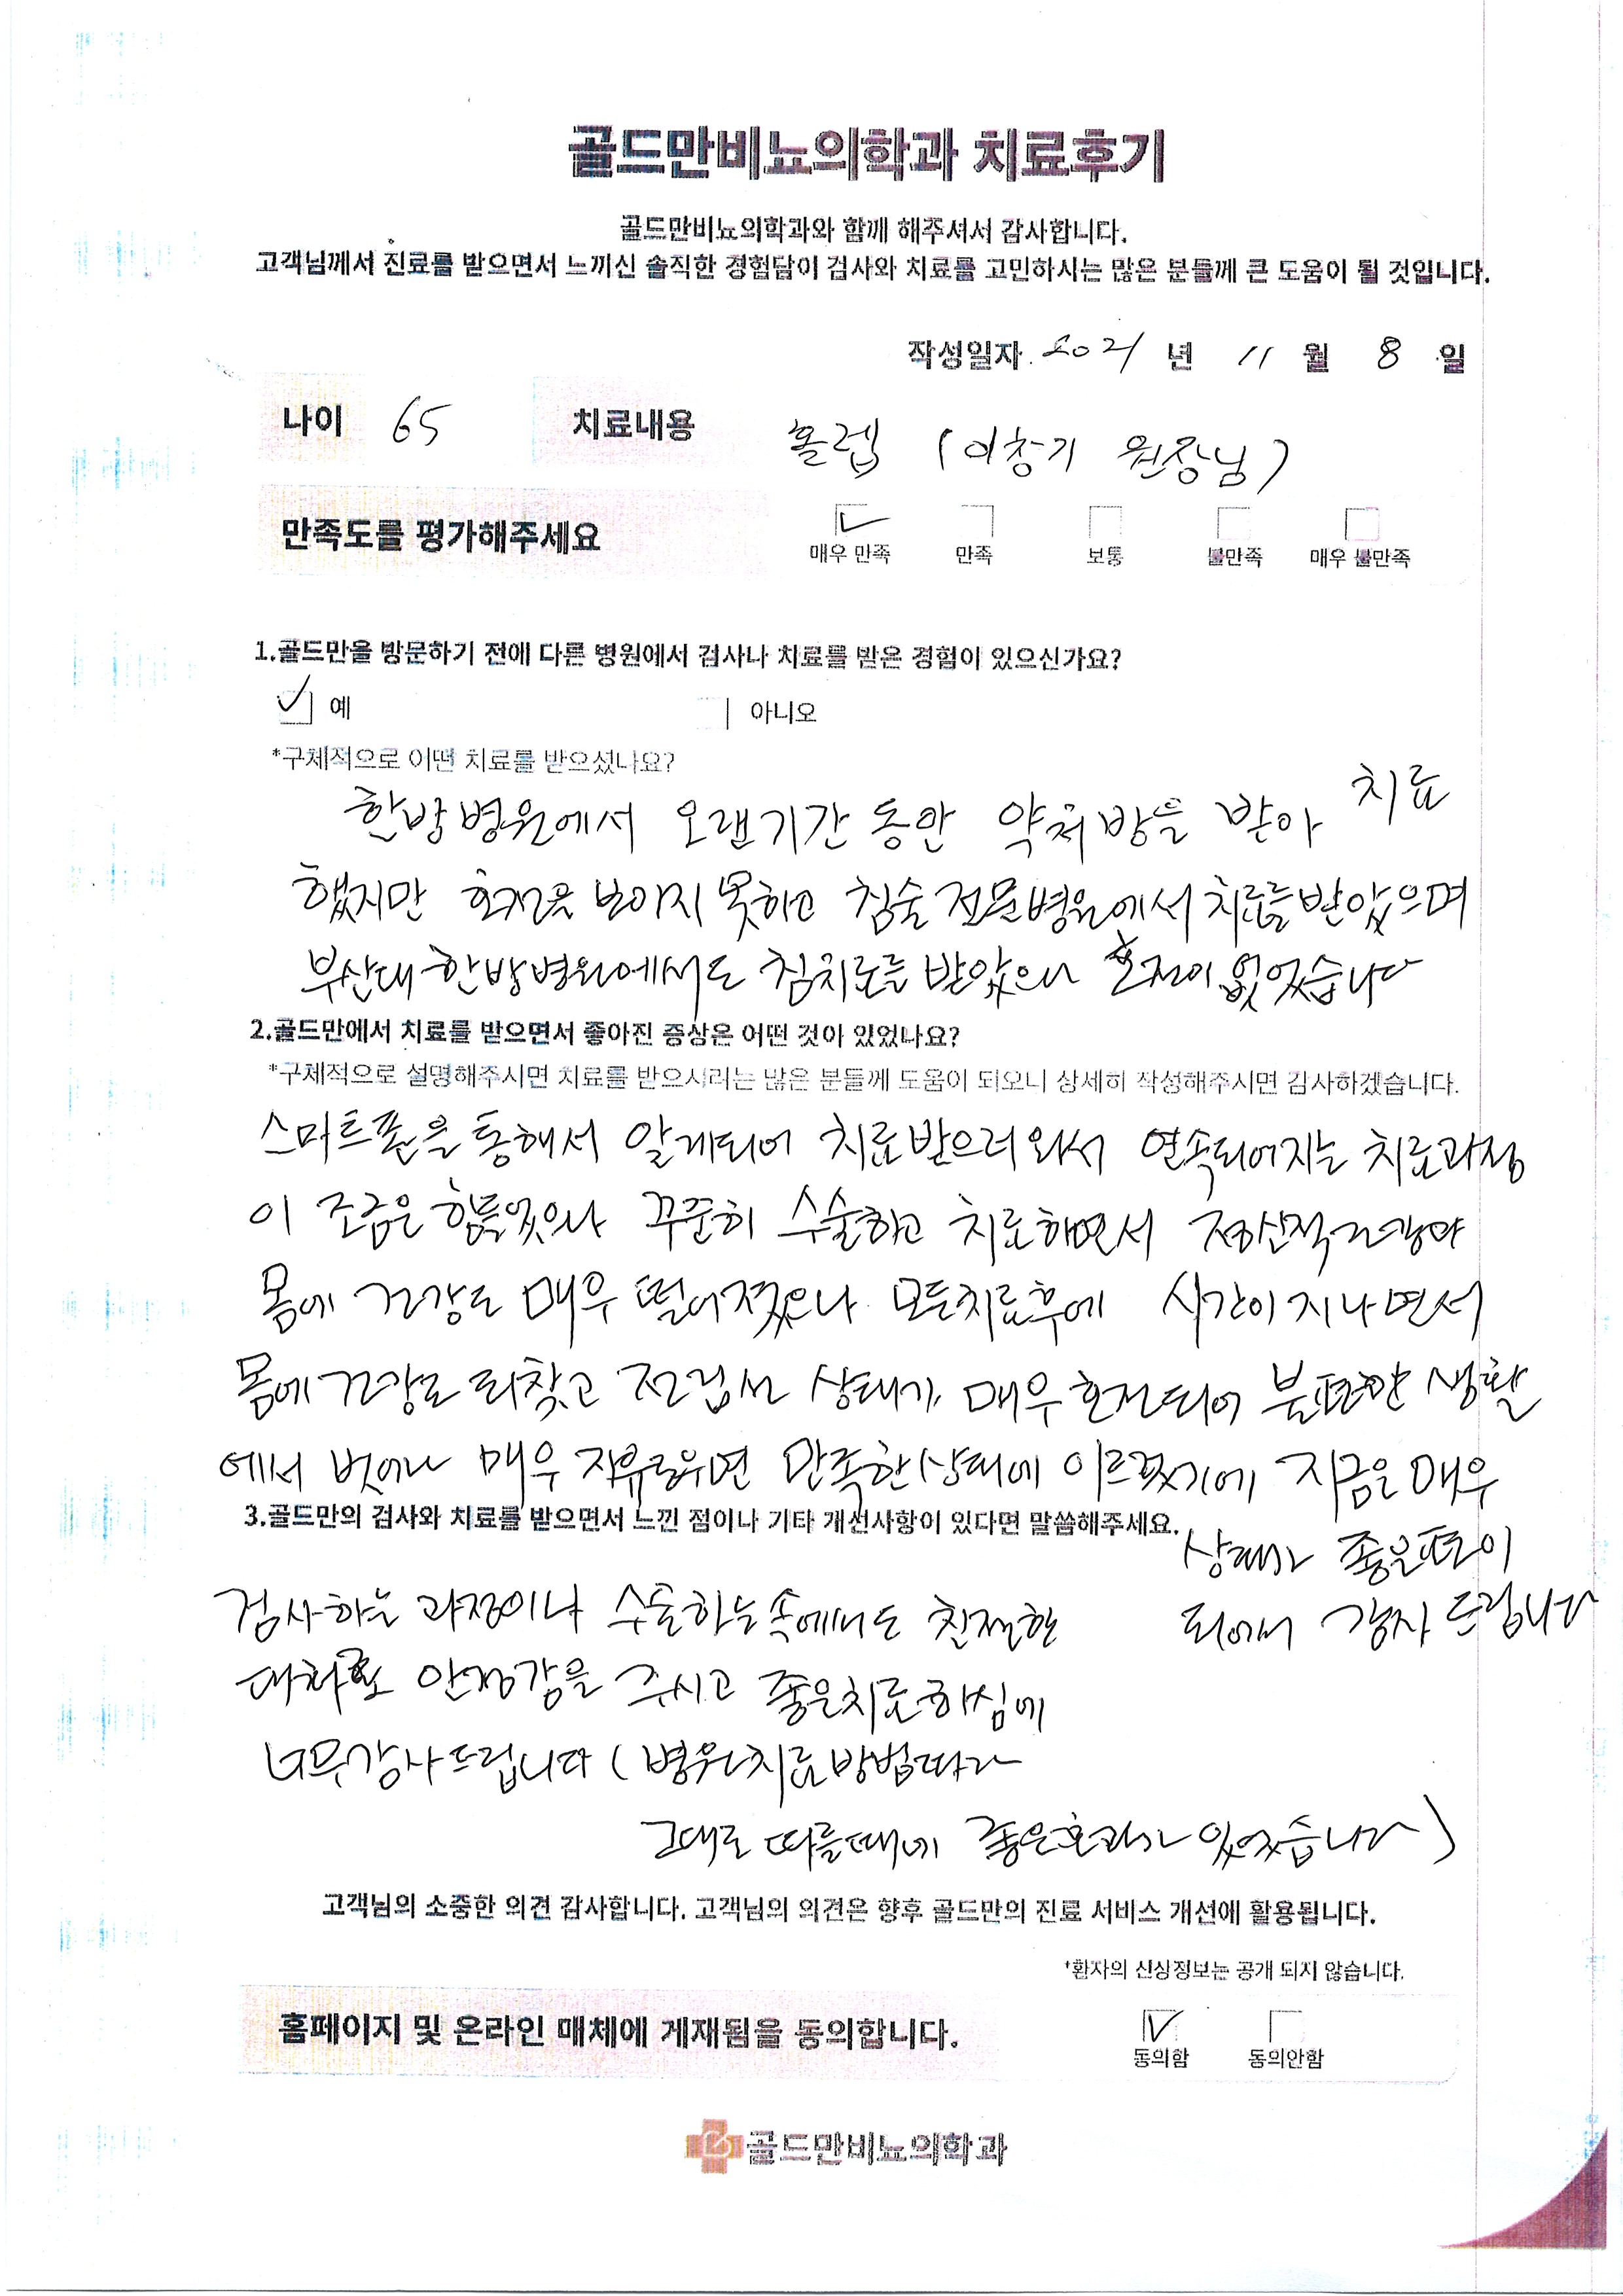 골드만비뇨의학과 치료후기
골드만비뇨의학과와 함께 해주셔서 감사합니다.
고객님께서 진료를 받으면서 느끼신 솔직한 경험담이 검사와 치료를 고민하시는 많은 분들께 큰 도움이 될 것입니다.
작성일자 2021 년 11 월 8 일
나이 65 치료내용 홀렙 (이창기 원장님)
만족도를 평가해주세요 매우 만족 만족 보통 불만족 매우 불만족
1.골드만을 방문하기 전에 다른 병원에서 검사나 치료를 받은 경험이 있으신가요?
예 아니오
*구체적으로 어떤 치료를 받으셨나요?
한방병원에서 오랜기간 동안 약처방을 받아 치료
했지만 호전을 보이지 못하고 침술전문병원에서 치료를받았으며
부산대한방병원에서도 침치료를 받았으나 호전이 없었습니다
2.골드만에서 치료를 받으면서 좋아진 증상은 어떤 것이 있었나요?
*구체적으로 설명해주시면 치료를 받으시려는 많은 분들께 도움이 되오니 상세히 작성해주시면 감사하겠습니다.
스마트폰을 통해서 알게되어 치료받으러와서 연속되어지는 치료과정
이 조금은 힘들었으나 꾸준히 수술하고 치료하면서 정신적건강과
몸에 건강도 매우 떨어졌으나 모든치료후에 시간이 지나면서
몸에건강도 되찾고 전립선 상태가 매우호전되어 불편한 생활
에서 벗어나 매우 자유로우면 만족한상태에 이르렀기에 지금은매우
상태가 좋은편이
되어서 감사드립니다
3.골드만의 검사와 치료를 받으면서 느낀 점이나 기타 개선사항이 있다면 말씀해주세요.
검사하는 과정이나 수술하는속에서도 친절한
대처로 안정감을 주시고 좋은치료하심에
너무감사드립니다 (병원치료방법따라
그대로 따를때에 좋은효과가 있었습니다)
고객님의 소중한 의견 감사합니다. 고객님의 의견은 향후 골드만의 진료 서비스 개선에 활용됩니다.
*환자의 신상정보는 공개 되지 않습니다.
홈페이지 및 온라인 매체에 게재됨을 동의합니다. 동의함 동의안함
골드만비뇨의학과